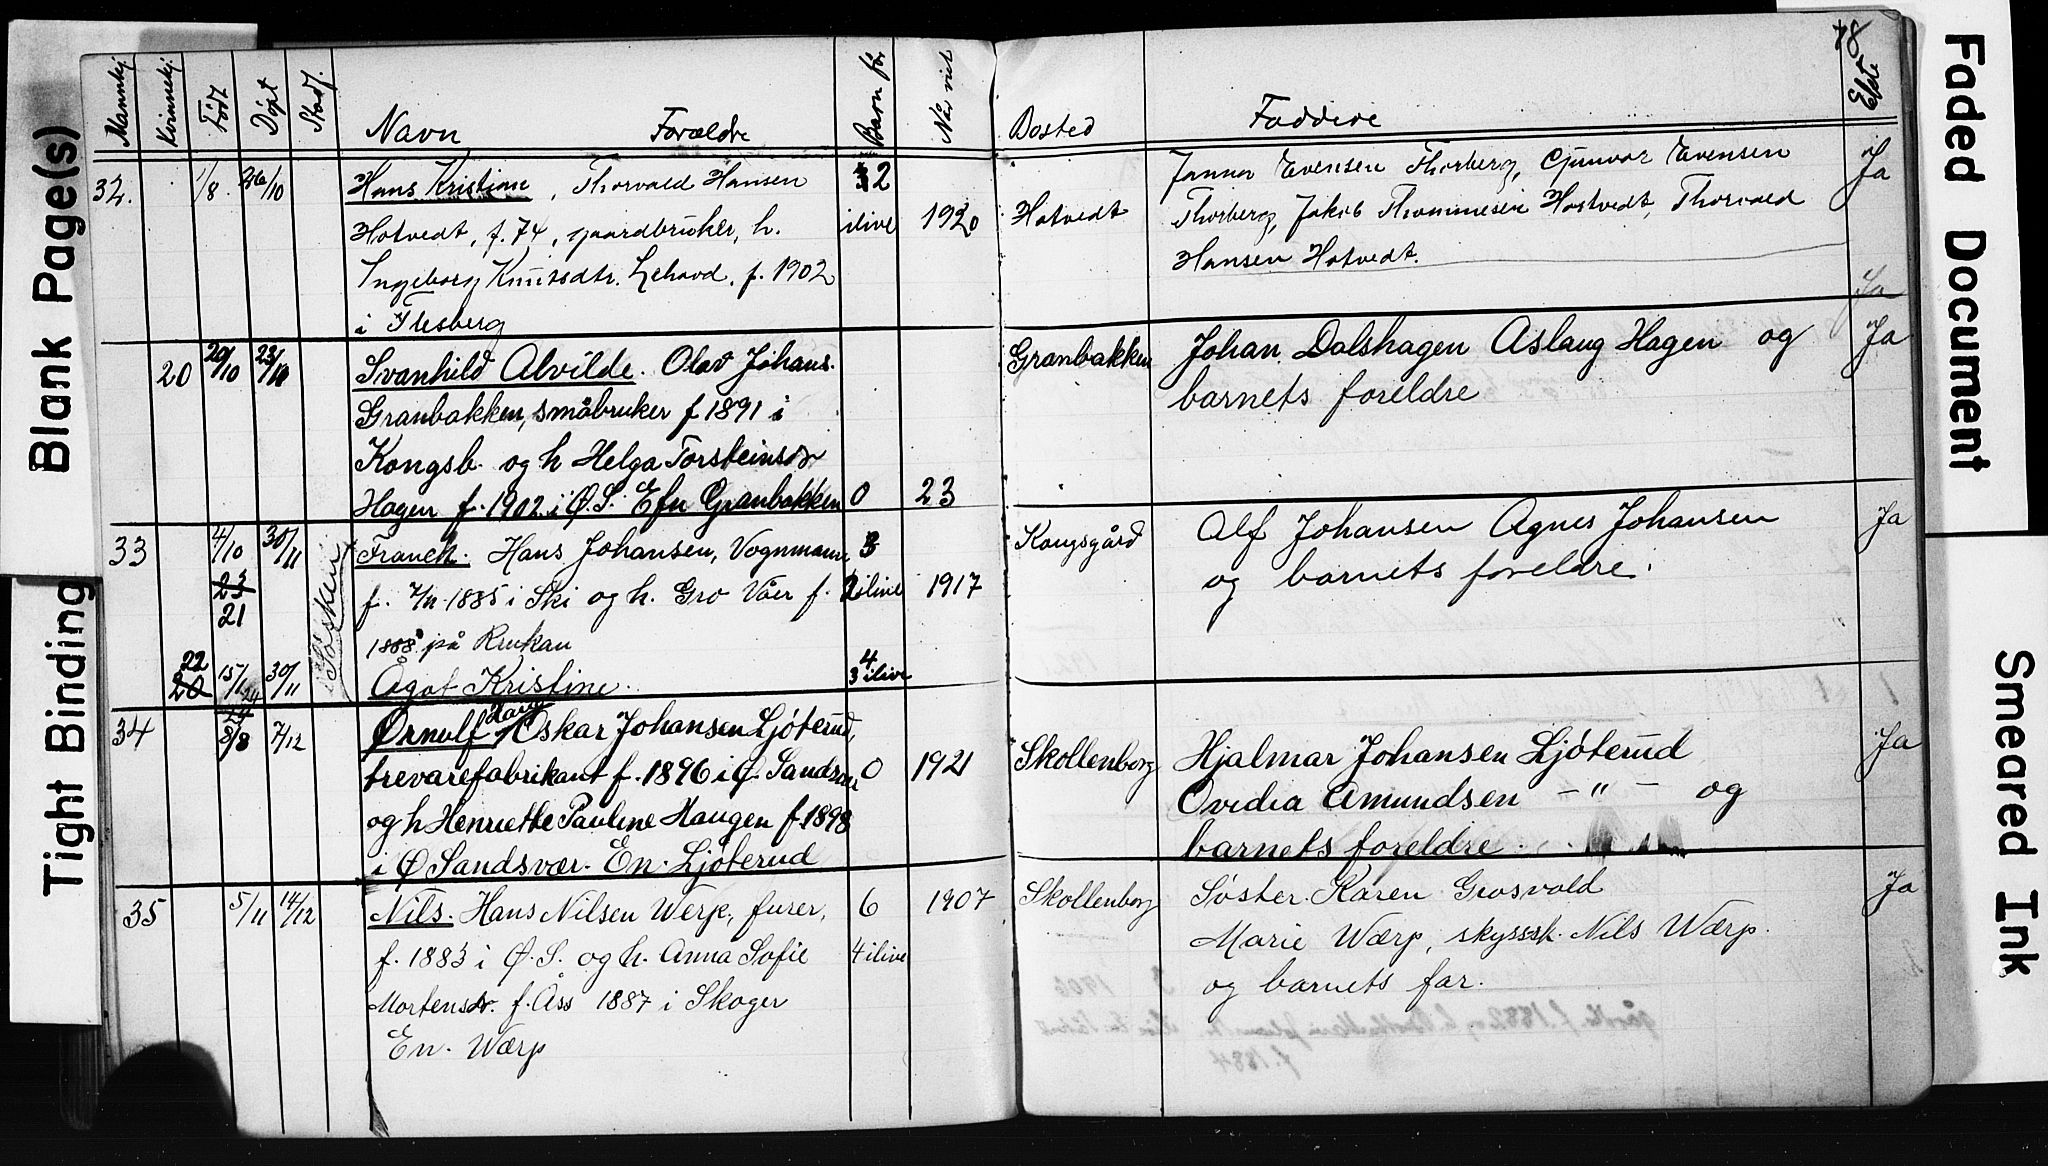 Blank Page(s)
Tight Binding
Faded Document
Smeared Ink
78
Mannkj. Kvinnekj. Født Døpt Stad. Navn Forældre Barn før Når viet Bosted Faddere Efste
32. 1/8 26/10 Hans Kristian, Thorvald Hansen 2 Jannor Evensen Thorberg, Gunvor Evensen Ja
Hotvedt, f. 74, gaardbruker, h. ilive 1920 Hotvedt Thorberg, Jakob Thommesen Hostvedt, Thorvald
Ingeborg Knutsdtr. Lehovd, f. 1902 Hansen Hotvedt.
i Flesberg Ja
20 20/10 23/10 Svanhild Alvilde. Olav Johans. Granbakken Johan Dalshagen Aslaug Hagen og Ja
Granbakken, småbruker f 1891 i barnets foreldre
Kongsb. og h Helga Torsteinsdr
Hagen f. 1902 i Ø. S. Efn Granbakken 0 23
33 4/10 30/11 Franck. Hans Johansen, Vognmann 3 Kongsgård Alf Johansen Agnes Johansen Ja
23 f. 7/11 1885 i Ski og h. Gro Våer f. 2 ilive 1917 og barnets foreldre.
21 1888 på Rukan
Søsken
22 20 15/1 24 30/11 Ågot Kristine. 4 3 ilive
34 8/8 7/12 Ørnulf Harry Oskar Johansen Ljøterud, Ja
trevarefabrikant f. 1896 i Ø. Sandsvær 0 1921 Skollenborg Hjalmar Johansen Ljøterud
og h Henriette Pauline Haugen f. 1898 Ovidia Amundsen – " – og
i Ø Sandsvær. En. Ljøterud barnets foreldre.
35 5/11 14/12 Nils. Hans Nilsen Wærp, furer, 6 1907 Skollenborg Søster Karen Grosvold Ja
f. 1883 i Ø. S. og h. Anna Sofie 4 ilive Marie Wærp, skyssk. Nils Wærp.
Mortensdr. f. Åss 1887 i Skoger og barnets far.
En. Wærp